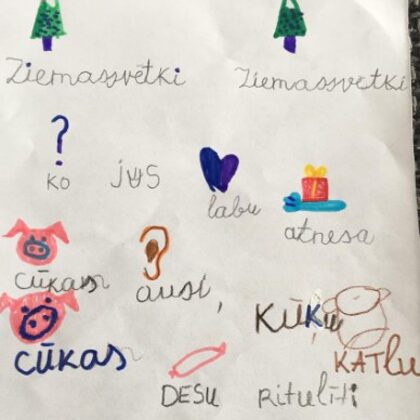 Ziemassvētki Ziemassvētki
? ko jūs labu atnesa
cūkas ausi,
cūkas KŪKU KATLU
DESU Ritulīti